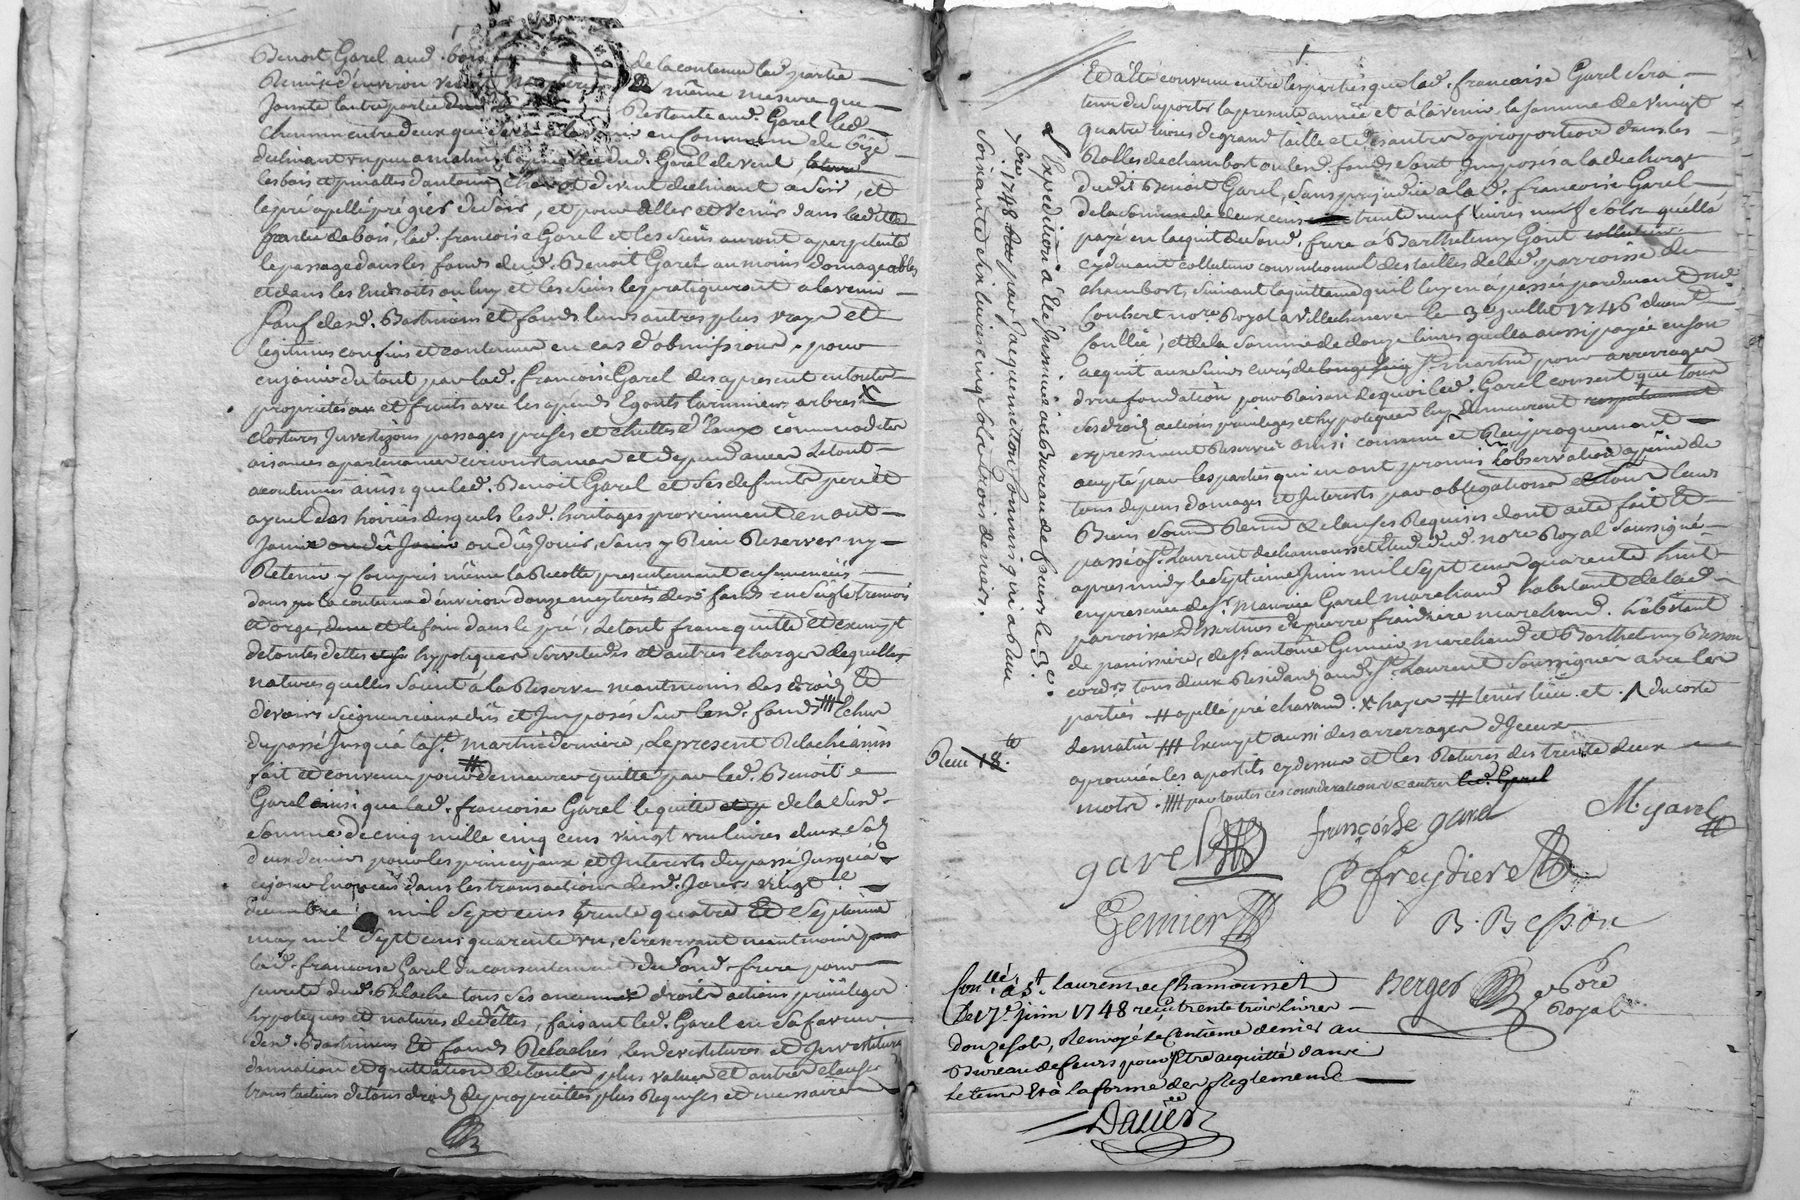 Benoit Garel aud. bois de la contenue lad. partie
Remise d'environ même mesure que
Jointe lautre partie Restante aud. Garel led.
Chemin entre deux que en Commun de bize
declinant un peu a matin dud. Garel de vent,
les bois et pinattes d'antoine declinant a soir, et
le pré apellé pré gier de soir, et pour aller et venir dans ladite
partie de bois, lad. francoise Garel et les siens auront a perpetuité
le passage dans les fonds dud. Benoit Garel au moins domageables
et dans les endroits ou luy et les siens le pratiqueront a lavenir
sauf desd. Bastimens et fonds leurs autres plus vrays et
legitimes confins et contenues en cas d'obmission, pour
en jouir du tout par lad. francoise Garel des apresent en toute
proprietés et fruits avec les ajeands Egouts larmiers arbres
clostures Juvestizons passages prises et chuttes d'Eaux commodités
aisances apartenances circonstances et dependances Le tout
accoutumés ainsi que led. Benoit Garel et ses defunts pere et
ayeul des hoiries desquels lesd. heritages proviennent en ont
Joui ou dû Jouir, sans y Rien Reserver ny
Retenir y Compris même la Recolte presentement ensemencée
dans la contenue d'environ douze meyterées desd. fonds en seigle tremois
et orge, et le foin dans le pré, Le tout franc quitte et exempt
de toutes dettes hypoteques servitudes et autres charges de quelles
natures quelles soint à la Reserve neantmoins des droits et
devoirs seigneuriaux dûs et Imposés sur lesd. fonds Echus
du passé Jusquá la St. martin derniere, Le present Relachement
fait et convenu pour demeurer quitte par led. Benoit
Garel ainsi que lad. francoise Garel le quitte de la susd.
somme de cinq mille cinq cens vingt un livres deux sols
deux deniers pour les principaux et Interests du passé Jusquá
ce jour Enoncés dans les transactions desd. Jours vingt
decembre mil sept cens trente quatre Et septieme
may mil sept cens quarente un, se reservant neantmoins
lad. francoise Garel du consentement dud. sond. frere pour
sureté dud. Relache tous ses anciennes droits actions privileges
hypoteques et natures de dettes, faisant led. Garel en sa faveur
desd. Bastimens Et fonds Relachés, les devestitures et Investitures
donnation et quittation de toutes plus values et autres clauses
translatives de tous droits de proprietés plus Requises et necessaires
Et a été convenu entre les parties que lad. francoise Garel sera
tenue de suporter la presente année et a lavenir la somme de vingt
quatre livres de grand taille et des autres a proportion dans les
Rolles de chambost ou lesd. fonds sont Imposés a la decharge
dudit Benoit Garel, sans prejudice a lad. francoise Garel
de la somme de deux cens trente neuf livres neuf sols quella
payé en laquit de sond. frere á Barthelemy Gont
cydevant collecteur conventionnel des tailles de lad. parroisse de
chambost, suivant la quittance quil luy en a passée pardevant Me
Coubert nore Royal a Villechenève le 3e Juillet 1746 duement
Conllée, et de la somme de douze livres quella aussi payée en son
aquit aux sieurs curés de longessaigne St. martin pour arrerages
d'une fondation pour Raison de quoi led. Garel consent que tous
ses droits actions privileges et hypoteques luy demeurent
expressement Reservés ainsi convenu et Reciproquement
accepté par les parties qui en ont promis l'observation a peine de
tous depens domages et Interests par obligation de tous leurs
Biens soumis Renon & clauses Requises dont acte fait Et
passé á St. Laurent de chamousset Etude dud. nore Royal soussigné
apres midy le septieme Juin mil sept cens quarente huit
en presence de sr. Maurice Garel marchand habitant de lad.
parroisse D'essertines et pierre fraidiere marchand habitant
de panissiere, de sr antoine Gemier marchand et Barthelemy Besson
cordr. tous deux Residands aud. St. Laurent Soussignés avec les
parties # apellé pré chavand. x hayes # tenir lieu. et. Λ du coste
de matin #H Exempt aussi des arrerages d'Iceux
aprouvé les apostils cydessus et les Ratures des trente deux
mots. #H par toutes ces considerations & autres led. Garel
Lexpedition à été Jnsinuée au Bureau de feurs le 3e.
7bre. 1748 par Jacquemetton Commis qui a Reçu
soixante six livres cinq sols trois deniers.
Reçu 18
garel francoise garel M garel
P freydiere
Gemier B. Besson
Berger nore Royal
Conllé á St. laurent de Chamousset
Le 17e Juin 1748 reçu trente trois Livres
douze sols, Renvoyé Le Centieme denier au
Bureau de feurs pour Etre acquitté dans
Le tems Et à la forme des Reglements
Dalier